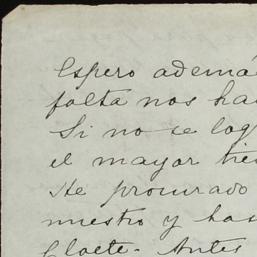 Espero ademá
falta nos ha
Si no se log
el mayor tie
He procurado
nuestro y has
Cloete. Antes